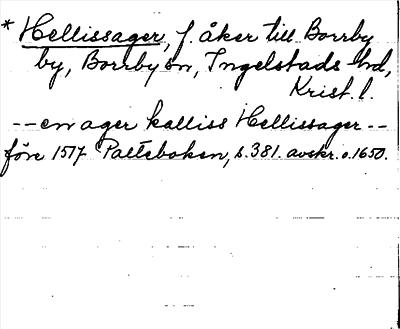 * Hellissager, f. åker till Borrby
by, Borrby sn, Ingelstads hd,
Krist. l.
-- en ager kalliss Hellissager --
före 1517 Palteboken, s. 381. avskr. o. 1650.